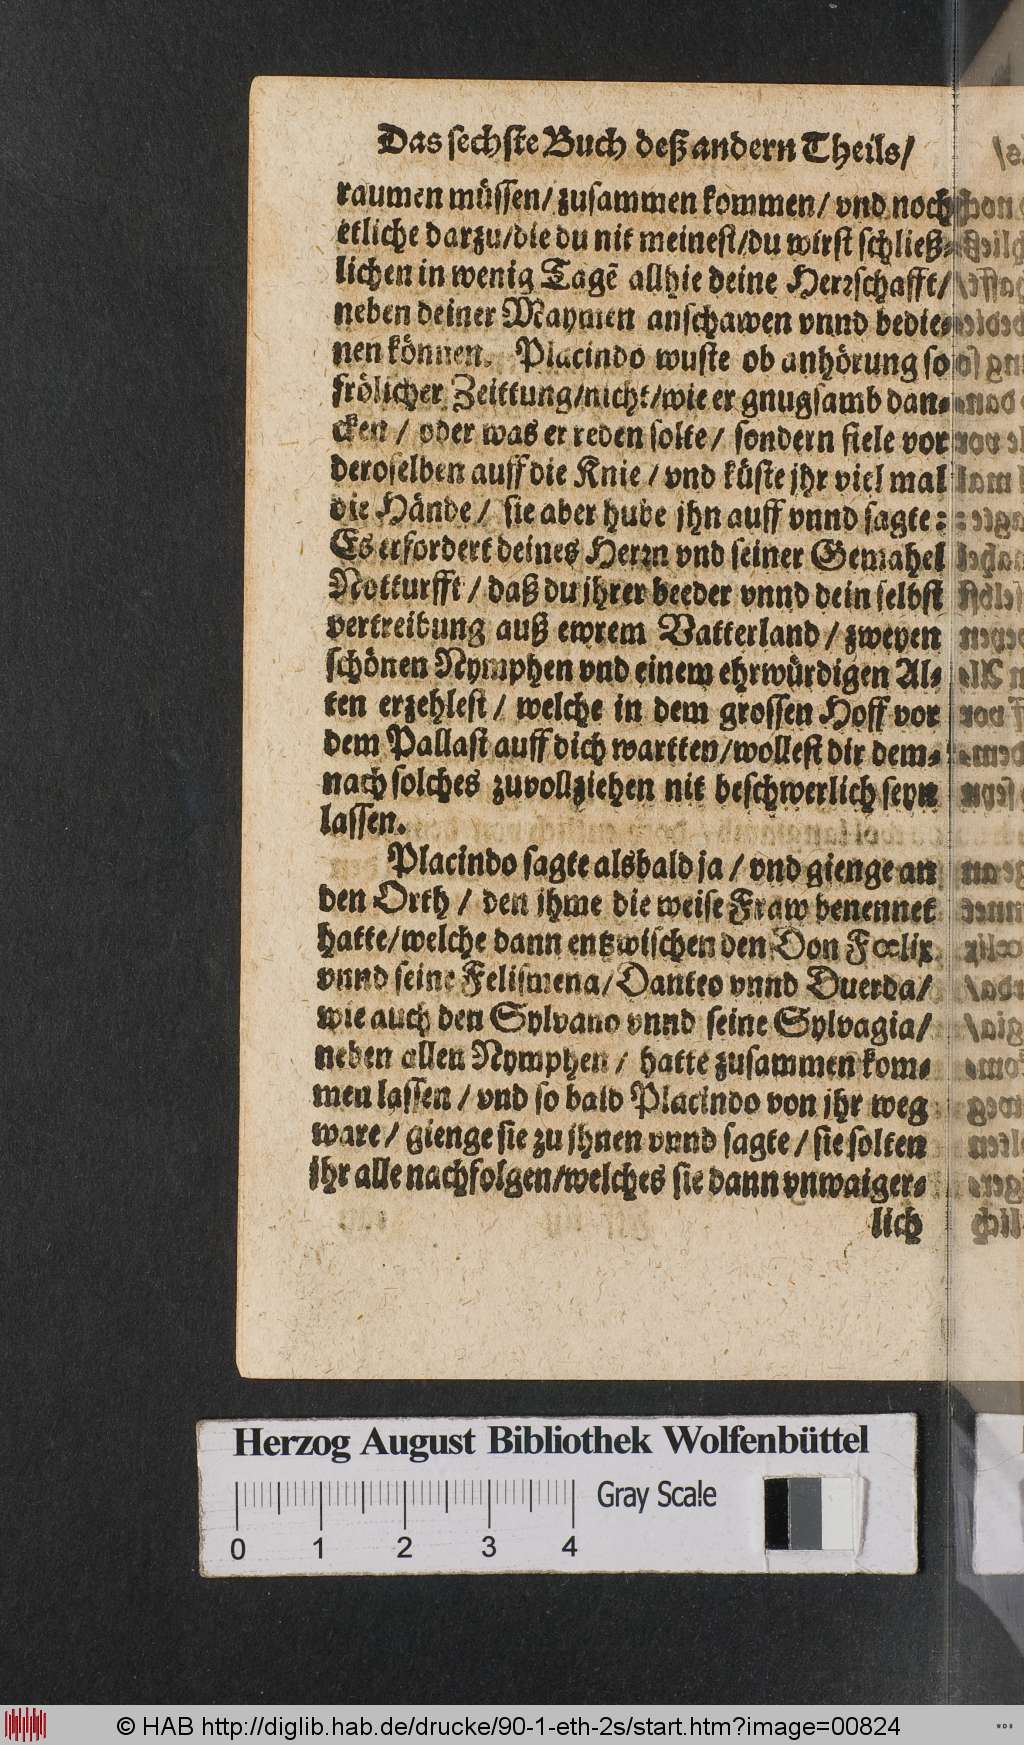 Das sechste Buch deß andern Theils/
raumen müssen/ zusammen kommen/ vnd noch
etliche darzu/die du nit meinest/du wirst schließ-
lichen in wenig Tagẽ allhie deine Herꝛschafft/
neben deiner Maymen anschawen vnnd bedie-
nen können. Placindo wuste ob anhörung so
frölicher Zeittung/nicht/wie er gnugsamb dan-
cken / oder was er reden solte / sondern fiele vor
deroselben auff die Knie / vnd küste jhr viel mal
die Hände / sie aber hube jhn auff vnnd sagte:
Es erfordert deines Herꝛn vnd seiner Gemahel
Notturfft / daß du jhrer beeder vnnd dein selbst
vertreibung auß ewrem Vatterland / zweyen
schönen Nymphen vnd einem ehrwürdigen Al-
ten erzehlest / welche in dem grossen Hoff vor
dem Pallast auff dich wartten/wollest dir dem-
nach solches zuvollziehen nit beschwerlich seyn
lassen.
Placindo sagte alsbald ja / vnd gienge an
den Orth / den jhme die weise Fraw benennet
hatte/welche dann entzwischen den Don Fœlix
vnnd seine Felismena/ Danteo vnnd Duerda/
wie auch den Sylvano vnnd seine Sylvagia/
neben allen Nymphen / hatte zusammen kom-
men lassen / vnd so bald Placindo von jhr weg
ware / gienge sie zu jhnen vnnd sagte / sie solten
jhr alle nachfolgen/welches sie dann vnwaiger-
lich
Herzog August Bibliothek Wolfenbüttel
Gray Scale
0 1 2 3 4
© HAB http://diglib.hab.de/drucke/90-1-eth-2s/start.htm?image=00824